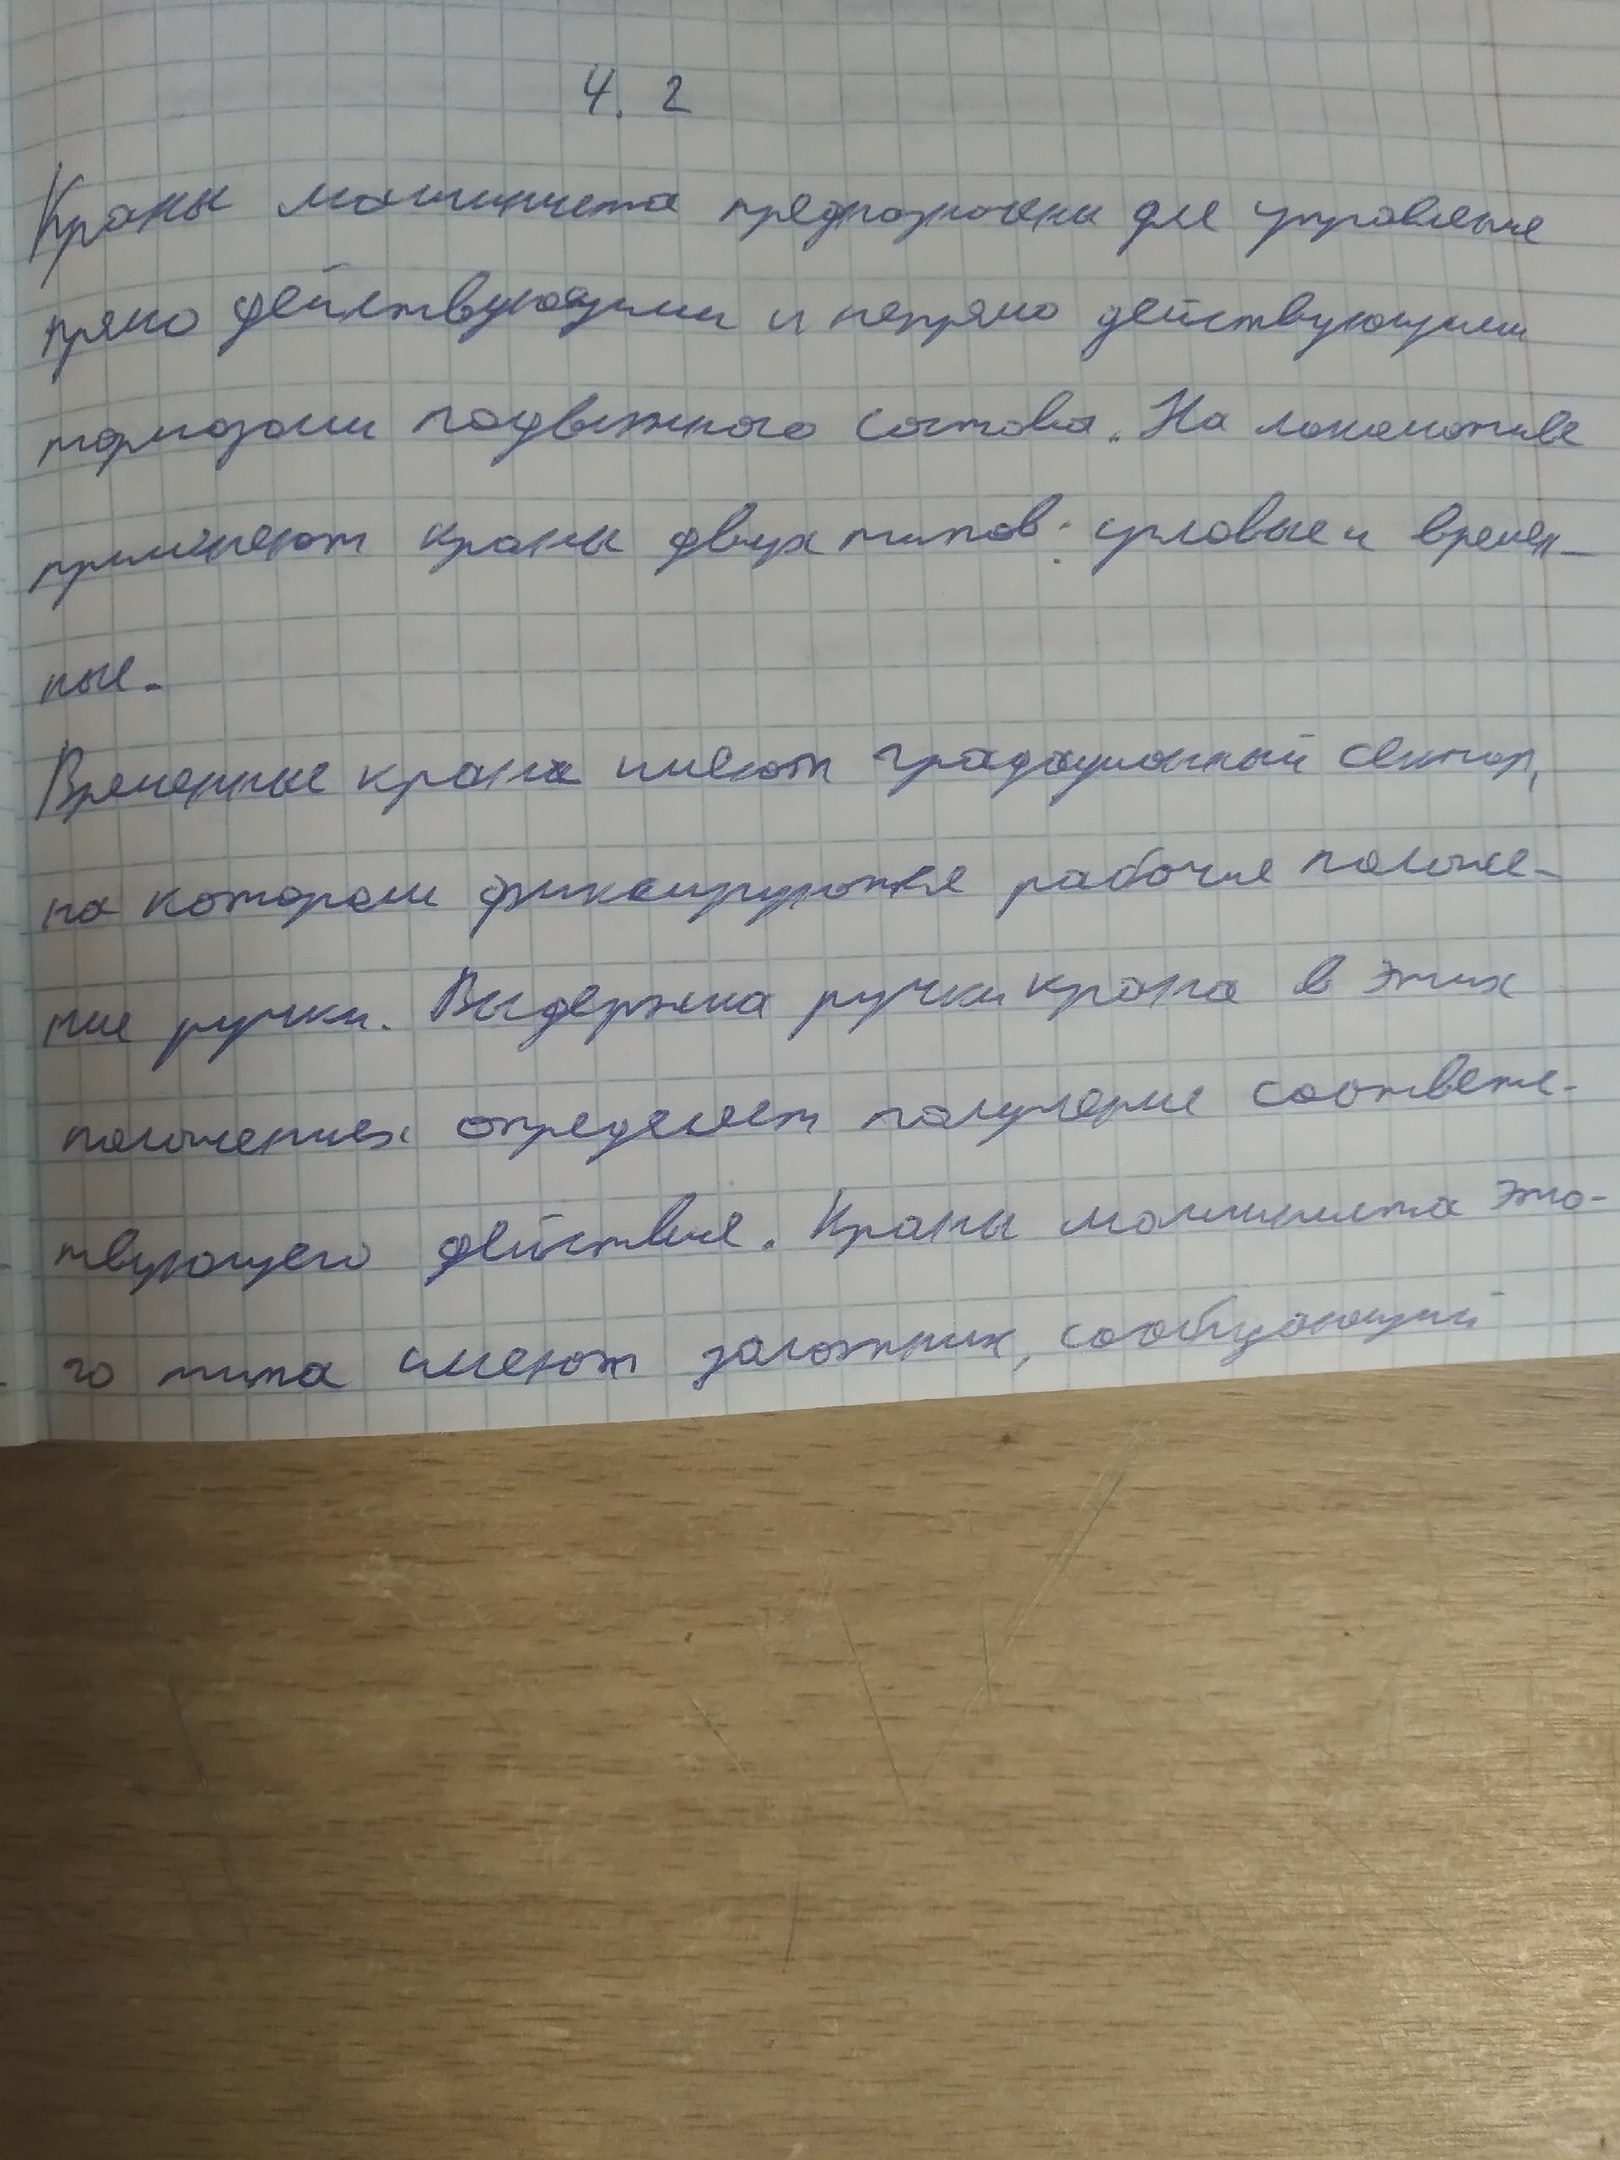 4. 2
Краны машиниста предназначены для управления
прямо действующими и непрямо действующими
тормозами подвижного состава. На локомотиве
применяют краны двух типов: угловые и времен-
ные.
Временные краны имеют градационный сектор,
на котором фиксируются рабочие положе-
ние ручки. Выдержка ручки крана в этих
положениях определяет получение соответс-
твующего действия. Краны машиниста это-
го типа имеют золотник, сообщающий